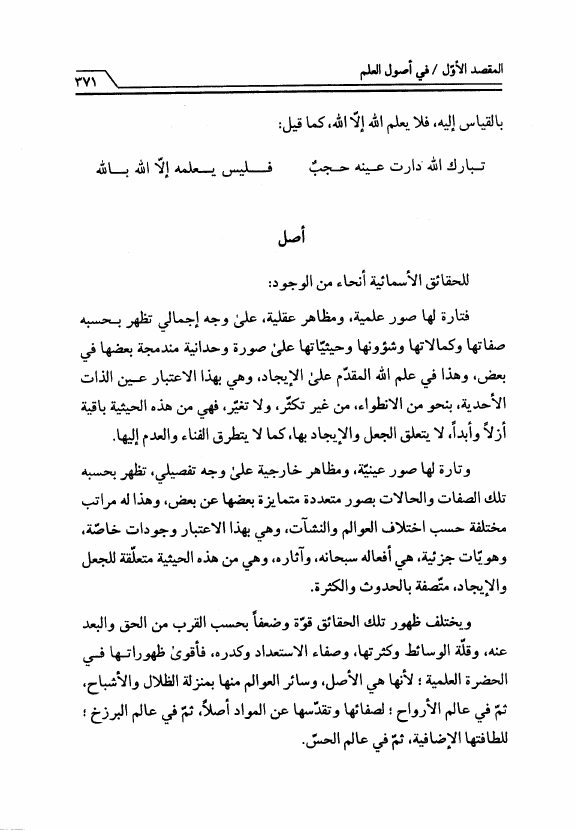 المقصد الأوّل / في أصول العلم
٣٧١
بالقياس إليه، فلا يعلم الله إلّا الله، كما قيل:
تـبارك الله دارت عـينه حـجبٌ فـــليس يـــعلمه إلّا الله بـــالله
أصل
للحقائق الأسمائية أنحاء من الوجود:
فتارة لها صور علمية، ومظاهر عقلية، علىٰ وجه إجمالي تظهر بـحسبه
صفاتها وكمالاتها وشؤونها وحيثيّاتها علىٰ صورة وحدانية مندمجة بعضها في
بعض، وهذا في علم الله المقدّم علىٰ الإيجاد، وهي بهذا الاعتبار عـين الذات
الأحدية، بنحو من الانطواء، من غير تكثّر، ولا تغيّر، فهي من هذه الحيثية باقية
أزلاً وأبداً، لا يتعلق الجعل والإيجاد بها، كما لا يتطرق الفناء والعدم إليها.
وتارة لها صور عينيّة، ومظاهر خارجية علىٰ وجه تفصيلي، تظهر بحسبه
تلك الصفات والحالات بصور متعددة متمايزة بعضها عن بعض، وهذا له مراتب
مختلفة حسب اختلاف العوالم والنشآت، وهي بهذا الاعتبار وجودات خاصّة،
وهويّات جزئية، هي أفعاله سبحانه، وآثاره، وهي من هذه الحيثية متعلّقة للجعل
والإيجاد، متّصفة بالحدوث والكثرة.
ويختلف ظهور تلك الحقائق قوّة وضعفاً بحسب القرب من الحق والبعد
عنه، وقلّة الوسائط وكثرتها، وصفاء الاستعداد وكدره، فأقوىٰ ظهوراتـها فـي
الحضرة العلمية ؛ لأنها هي الأصل، وسائر العوالم منها بمنزلة الظلال والأشباح،
ثمّ في عالم الأرواح ؛ لصفائها وتقدّسها عن المواد أصلاً، ثمّ في عالم البرزخ ؛
للطافتها الإضافية، ثمّ في عالم الحسّ.